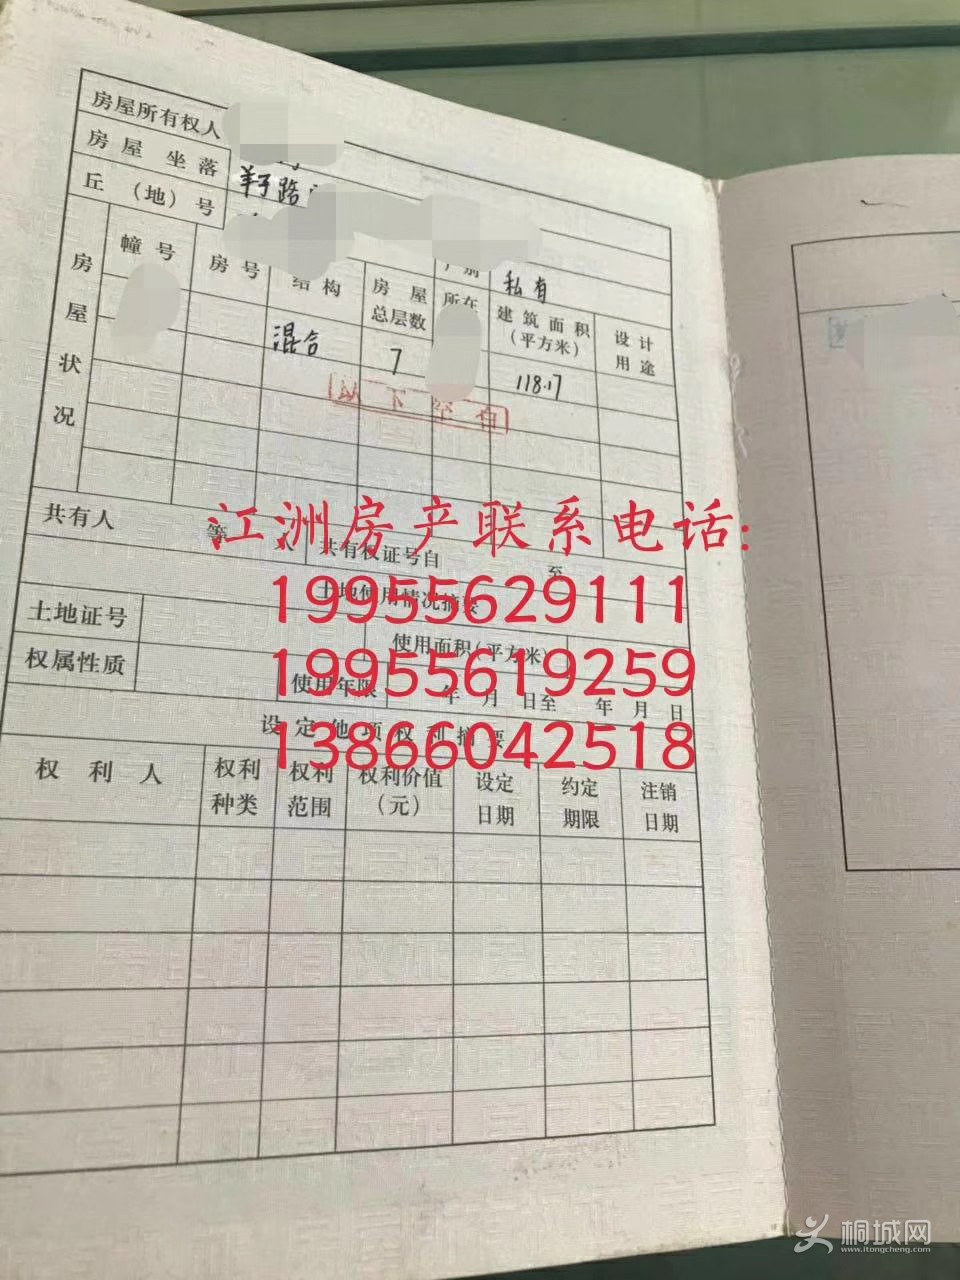 房屋所有权人
房屋坐落
羊子路
丘（地）号
私有
房屋状况
幢号
房号
结构
房屋总层数
所在
建筑面积（平方米）
设计用途
混合
7
118.17
以下空白
共有人
等
人
共有权证号自
至
江洲房产联系电话:
土地使用情况摘要
19955629111
土地证号
使用面积（平方米）
19955619259
权属性质
使用年限
年 月 日至 年 月 日
设定他项权利摘要
13866042518
权利人
权利种类
权利范围
权利价值（元）
设定日期
约定期限
注销日期
桐城网
www.itongcheng.com